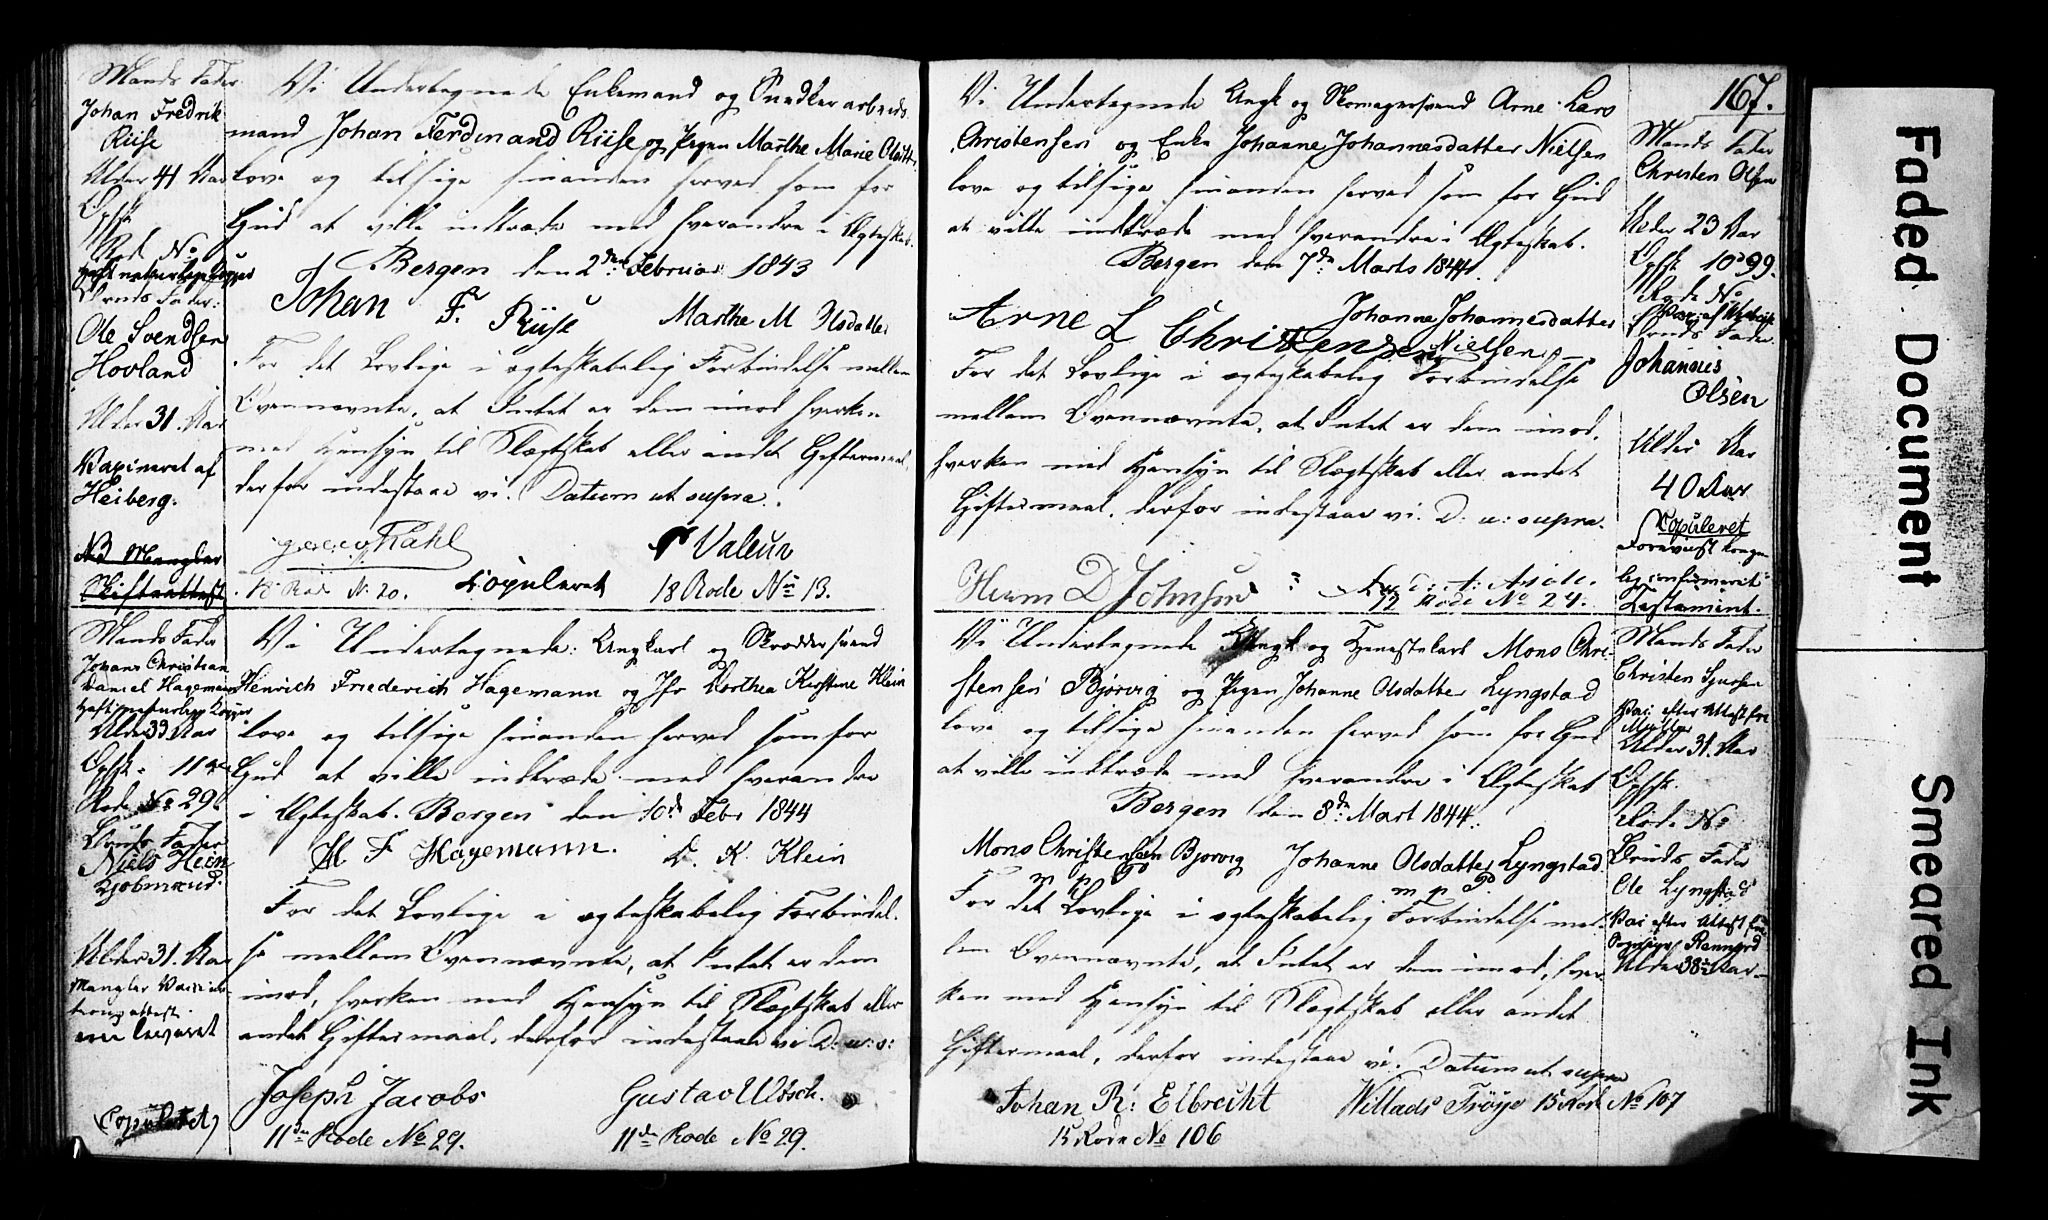 Mands Fader
Johan Fredrik
Riise
Alder 41 Aar
Opsk
Rode No
Haft naturlige Kopper
Bruds Fader:
Ole Svendsen
Hovland
Alder 31. Aar
Vaxineret af
Heiberg.
NB Mangler
Skifteattest
Vi Undertegnede Enkemand og Snedker arbeids
mand Johan Ferdinand Riise og Pigen Marthe Marie Olsdtt.
love og tilsige hinanden herved som for
Gud at ville indtræde med hverandre i Ægteskab.
Bergen den 2den Februar 1843
Johan F. Riise Marthe M Olsdatter
For det Lovlige i ægteskabelig Forbindelse mellem
Ovennævnte, at Intet er dem imod hverken
med Hensyn til Slægtskab eller andet Giftermaal,
derfor indestaae vi. Datum ut supra.
Kahl Valeur
Rode N. 20. Copuleret 18 Rode No 13.
Mands Fader
Johans Christian
Daniel Hagemann
Haft naturlige Kopper
Alder 33 Aar
Opsk. 11te
Rode No 29.
Bruds Fader
Niels Klein
Kjøbmand.
Alder 31. Aar
Mangler Vaccina-
tions attest
er leveret
(Copuleret)
Vi Undertegnede: Ungkarl og Skrædersvend
Henrich Friederich Hagemann og Jfr Dorthea Kirstine Klein
love og tilsige hinanden herved som for
Gud at ville indtræde med hverandre
i Ægteskab. Bergen den 10de Febr 1844
H F Hagemann. D. K. Klein
For det Lovlige i ægteskabelig Forbindel-
se mellem Ovennævnte, at Intet er dem
imod, hverken med Hensyn til Slægtskab eller
andet Giftermaal, derfor indestaae vi D: u: s:
Joseph Jacobs Gustav Wösch.
11te Rode No 29. 11te Rode No 29.
167.
Vi Undertegnede Ungk og Skomagersvend Arne Lars
Christensen og Enke Johanne Johannesdatter Nielsen
love og tilsige hinanden herved som for Gud
at ville indtræde med hverandre i Ægteskab.
Bergen den 7de Marts 1844.
Arne L Christensen Johanne Johannesdatter
Nielsen
For det Lovlige i ægteskabelig Forbindelse
mellem Ovennævnte, at Intet er dem imod,
hverken med Hensyn til Slægtskab eller andet
Giftermaal, derfor indestaae vi. D: u: supra.
Herm D Johnsen
12 Rode No 24.
Mands Fader
Christen Olsen
Alder 23 Aar
Opsk 10 99.
Rode No
Bruds Fader
Johannes
Olsen
Alder Aar
40 Aar
Copuleret
Forevist Konge
lig confirmeret
Testament.
Vi Undertegnede Ungk og Tjenestekarl Mons Chri-
stensen Bjørvig og Pigen Johanne Olsdatter Lyngstad
love og tilsige hinanden herved som for Gud
at ville indtræde med hverandre i Ægteskab
Bergen den 8de Mart 1844.
Mons Christensen Bjorvig Johanne Olsdatter Lyngstad.
m p P m p P.
For det Lovlige i ægteskabelig Forbindelse mel-
lem Ovennævnte, at Intet er dem imod, hver-
ken med Hensyn til Slægtskab eller andet
Giftermaal, derfor indestaae vi. Datum ut supra
Johan R: Elbrecht Willads Trøye 15 Rode No 107
15 Rode No 106
Mands Fader
Christen Sjursen
Vac. efter Attest fra
Møller
Alder 31. Aar
Opsk.
Rode No
Bruds Fader
Ole Lyngstad
Vac efter Attest fra
Alder 38 Aar
Faded Document
Smeared Ink